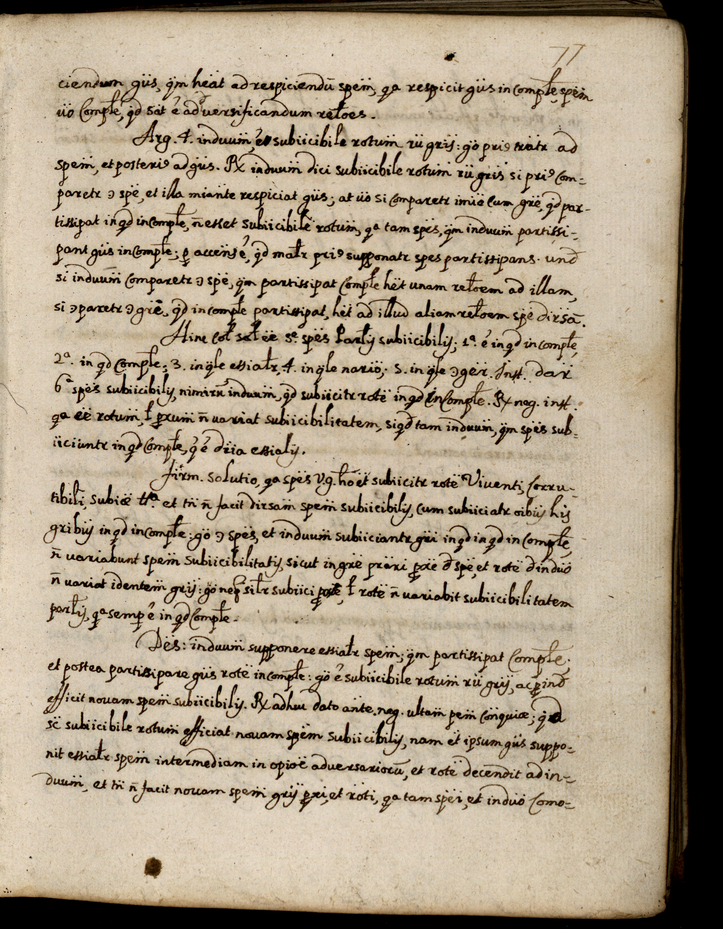 77
ciendum gus, qm heat ad respiciendu spem, qa respicit gus in comple, spem
uo comple, qd sat e ad versificandum reloes.
Arg. 4. induum, e subiicibile rotum gris: go pri9 tratr ad
spem, et posteri9 ad gus. Rx induum dici subiicibile rotum gris si pri9 com=
paretr ɔ spe, et illa miante respiciat gus; at uo si comparetr imie cum gre, qd par-
tissipat in qd incomple, n esset subiicibile rotum, qa tam spes, qm induum partissi-
pant gus incomple; p accens e, qd matr pri9 supponatr spes partissipans. und
si induum comparetr ɔ spe, qm partissipat comple het unam reloem ad illam,
si ɔparetr ɔ gre, qd incomple partissipat, het ad illud aliam reloem spe dirsa.
Hinc col ee 5e spes subiicibilis; 1a e in qd incomple,
2a. in qd comple; 3. in qle essialr, 4. in qle nario; 5. in qle ɔger. Inst. dari
6a spes subiicibilis, nimirn induum, qd subiicitr rote in qd incomple. Rx neg. inst.
qa ee rotum, l pxum n variat subiicibilitatem, siqd tam induum, qm spes sub-
iiciuntr in qd comple, q e dria essialis.
firm. solutio, qa spes v.g. ho et subiicitr rote Viventi, corru-
tibili, subiae et tn n facit dirsam spem subiicibilis, cum subiiciatr oibus his
gribus in qd incomple: go ɔ spes, et induum subiiciantr gri in qd incomple,
n variabunt spem subiicibilitatis, sicut in gre prari pxie d spe, et rote d induo
n variat identem gris: go neq silr subiici pxie, l rote n variabit subiicibilitatem
qa semp e in qd comple.
Des: induum supponere essialr spem; qm partissipat comple;
et postea partissipare gus rote incomple: go e subiicibile rotum gris, ac pind
efficit novam spem subiicibilis. Rx adhuc dato ante. neg. ultam pem conquiae; qd
sc subiicibile rotum efficiat novam spem subiicibilis, nam et ipsum gus suppo-
nit essialr spem intermediam in opioe adversarioru, et rote decendit ad in-
duum, et tn n facit novam spem gris pxi, et roti, qa tam spei, et induo como-